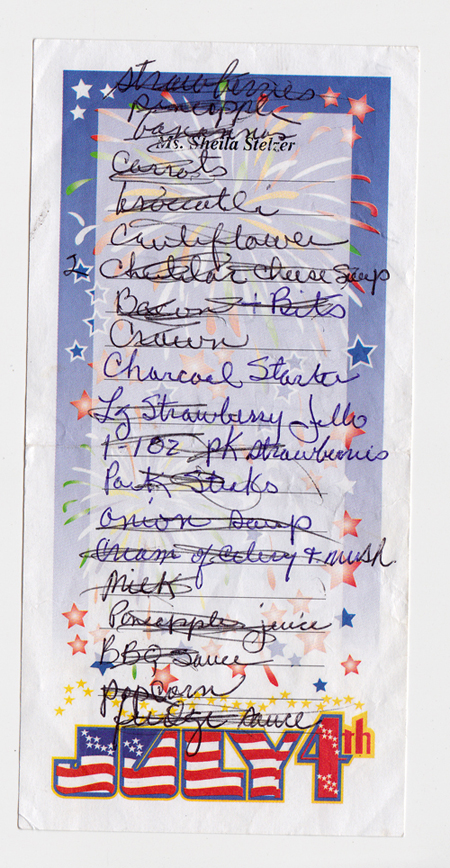 strawberries
pineapple
bananas
Ms. Sheila Stelzer
Carrots
broccolli
Cauliflower
2 Cheddar Cheese Soup
Bacon + Bits
Charcoal Starter
Lg Strawberry Jello
1-10z pk strawberries
Pork Steaks
onion soup
Cream of celery + mush
Milk
Pineapple juice
BBQ sauce
popcorn
fudge sauce
JULY 4th